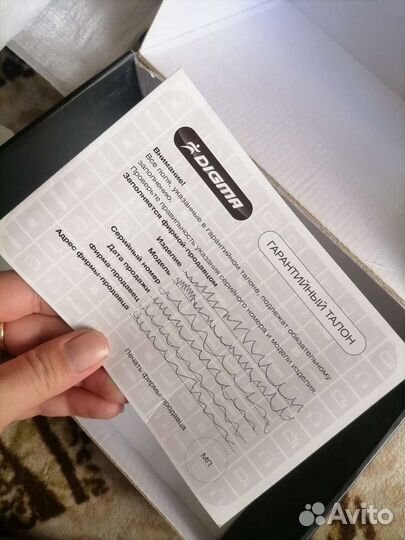 DIGMA
ГАРАНТИЙНЫЙ ТАЛОН
Внимание!
Все поля, указанные в гарантийном талоне, подлежат обязательному
заполнению.
Проверьте правильность указания серийного номера и модели изделия.
Заполняется фирмой-продавцом
Изделие
Модель
Серийный номер
Дата продажи
Фирма-продавец
Адрес фирмы-продавца
Печать фирмы-продавца
МП
Avito